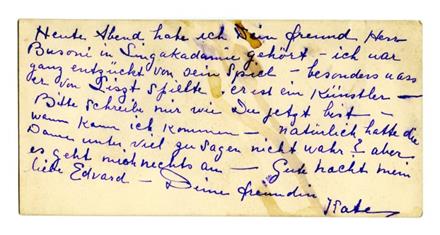 Heute Abend habe ich Dein freund Herr
Busoni in Singakadamie gehört - ich war
ganz entzückt von sein Spiel - besonders was
er von Liszt spielte - er ist ein Künstler -
Bitte schreibe mir wie Du jetzt bist -
wann kann ich kommen - natürlich hatte die
Damen unten viel zu sagen nicht wahr? aber
es geht mich nechts an - Gute nacht mein
liebe Edvard - Deine freundin
Kate